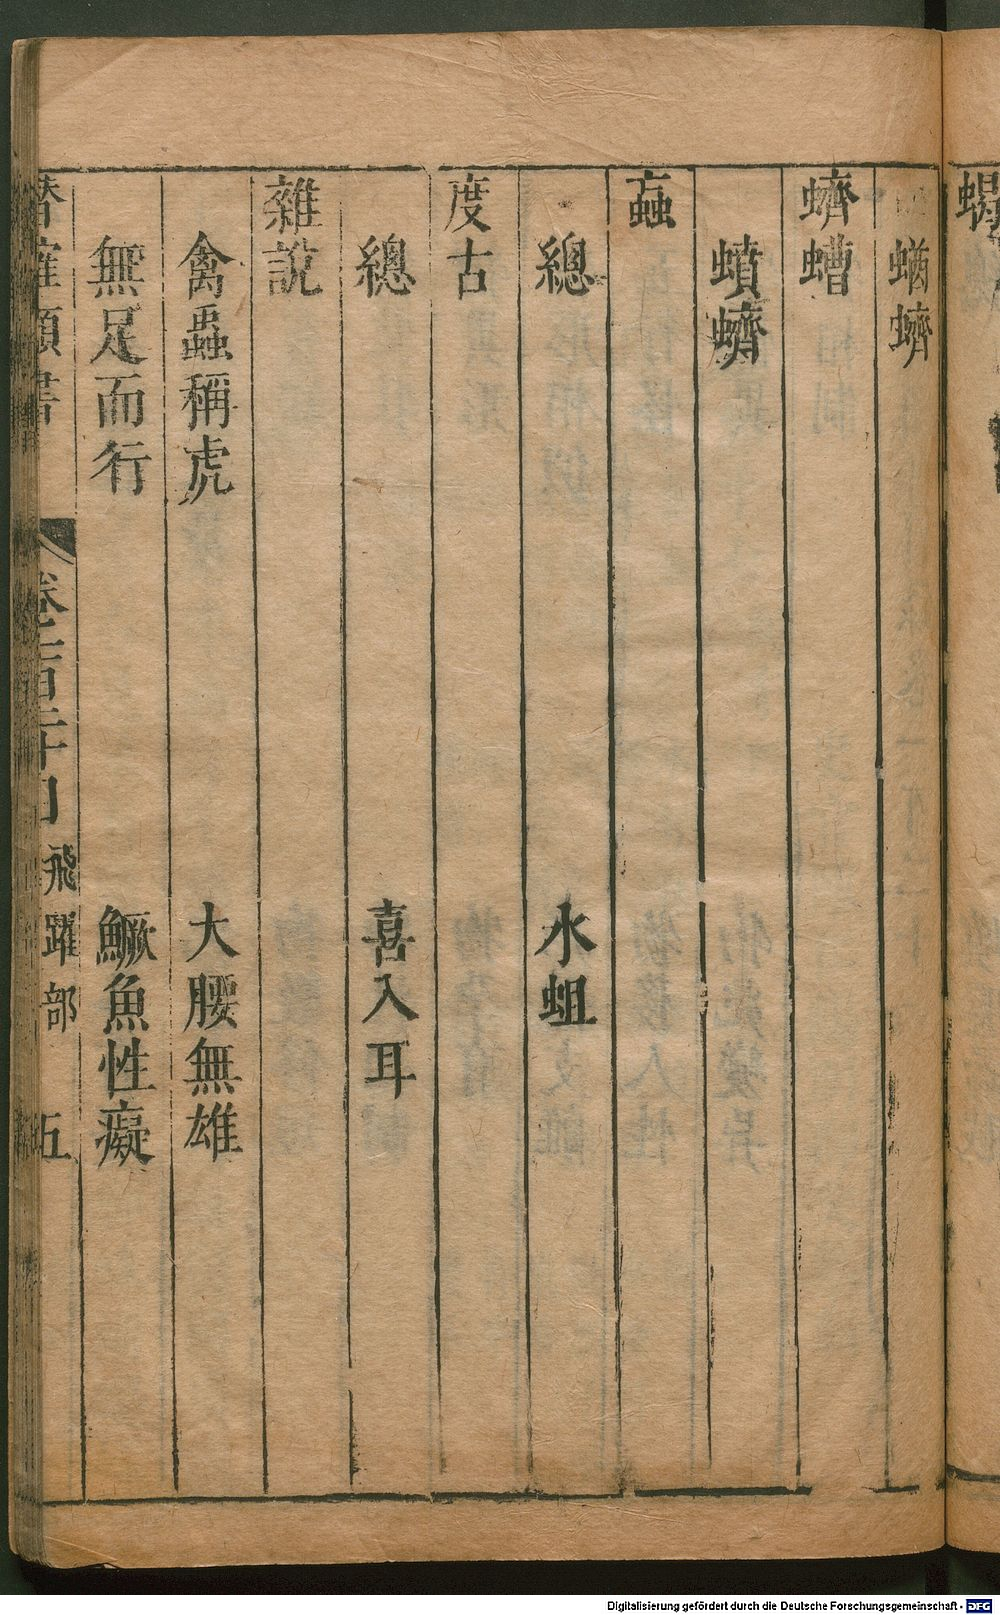 蝎
蝤蠐
蠐螬
蟦蠐
蝱
總 水蛆
度古
總 喜入耳
雜說
禽蟲稱虎 大腰無雄
無足而行 鱖魚性癡
潛確類書 卷一百二十四 飛躍部 五
Digitalisierung gefördert durch die Deutsche Forschungsgemeinschaft - DFG